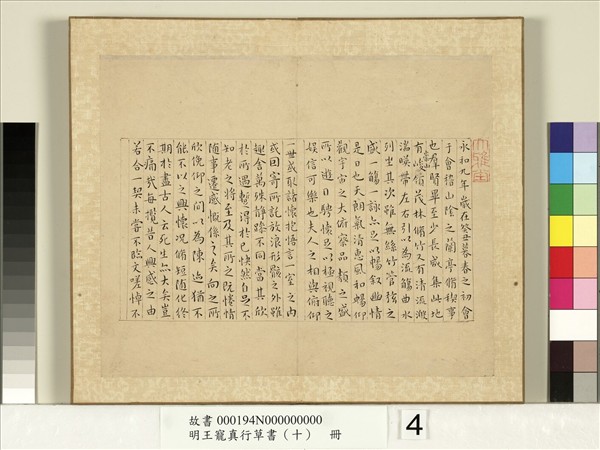 永和九年歲在癸丑暮春之初會
于會稽山陰之蘭亭脩禊事
也群賢畢至少長咸集此地
有崇山峻領茂林脩竹又有清流激
湍暎帶左右引以為流觴曲水
列坐其次雖無絲竹管弦之
盛一觴一詠亦足以暢敘幽情
是日也天朗氣清惠風和暢仰
觀宇宙之大俯察品類之盛
所以遊目騁懷足以極視聽之
娛信可樂也夫人之相與俯仰
一世或取諸懷抱悟言一室之內
或因寄所託放浪形骸之外雖
趣舍萬殊靜躁不同當其欣
於所遇暫得於己怏然自足不
知老之將至及其所之既惓情
隨事遷感慨係之矣向之所
欣俛仰之間以為陳迹猶不
能不以之興懷況脩短隨化終
期於盡古人云死生亦大矣豈
不痛哉每攬昔人興感之由
若合一契未嘗不臨文嗟悼不
故書 000194N000000000
明王寵真行草書（十） 冊
4